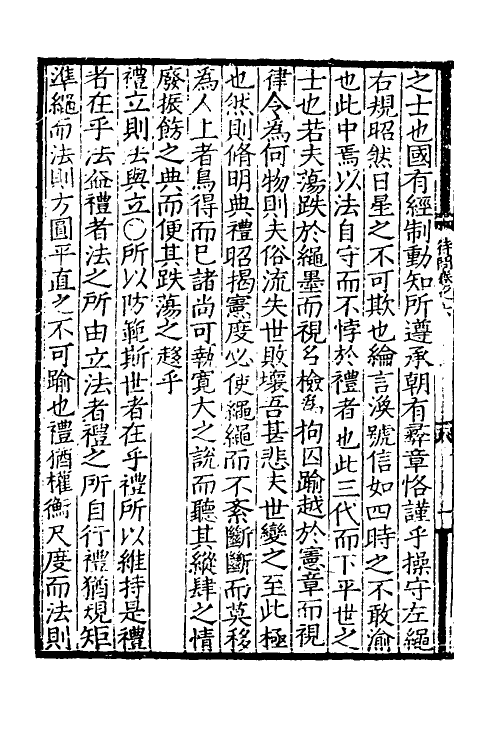 之士也國有經制動知所遵承朝有彞章恪謹乎操守左繩
右規昭然日星之不可欺也綸言渙號信如四時之不敢渝
也此中焉以法自守而不悖於禮者也此三代而下平世之
士也若夫蕩跌於繩墨而視名檢為拘囚踰越於憲章而視
律令為何物則夫俗流失世敗壞吾甚悲夫世變之至此極
也然則脩明典禮昭揭憲度必使繩繩而不紊斷斷而莫移
為人上者烏得而已諸尚可執寛大之說而聽其縱肆之情
廢振飭之典而便其跌蕩之趍乎
禮立則法與立〇所以防範斯世者在乎禮所以維持是禮
者在乎法葢禮者法之所由立法者禮之所自行禮猶規矩
準繩而法則方圓平直之不可踰也禮猶權衡尺度而法則
待問